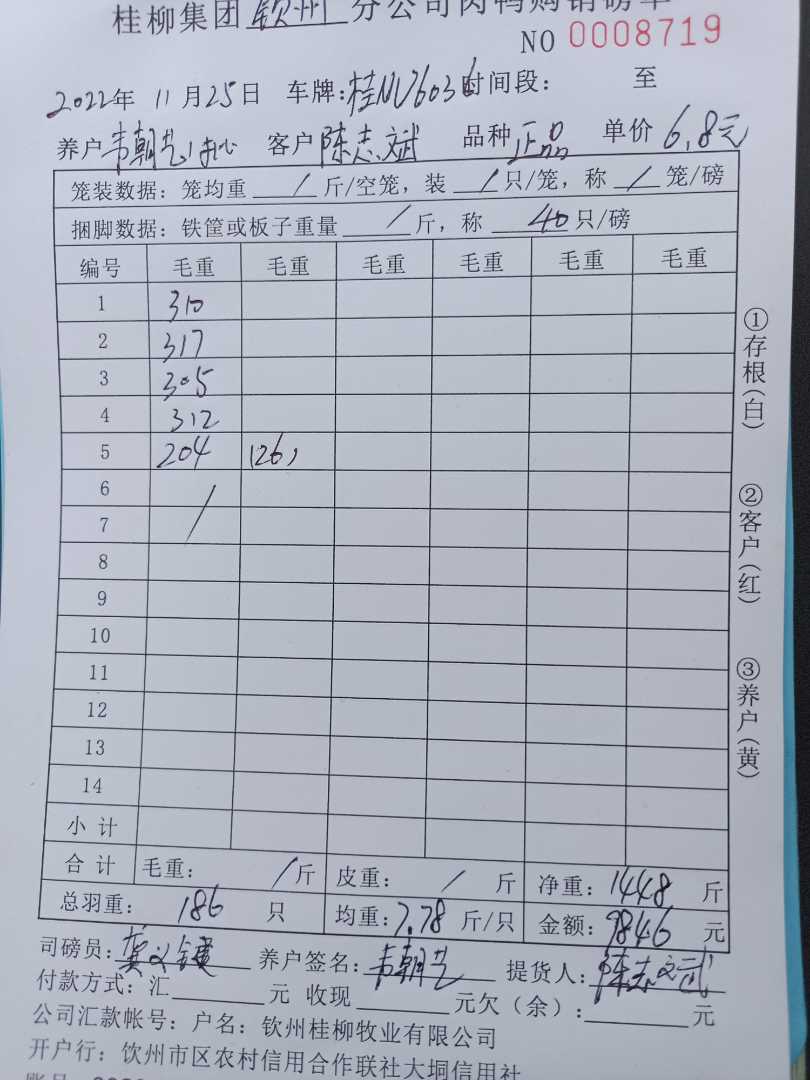 桂柳集团 钦州 分公司肉鸭购销磅单
NO 0008719
2022年 11月25日 车牌:桂NU6036 时间段: 至
养户 韦朝艺 客户 陈志斌 品种 正品 单价 6.8元
笼装数据: 笼均重 / 斤/空笼, 装 / 只/笼, 称 / 笼/磅
捆脚数据: 铁筐或板子重量 / 斤, 称 40 只/磅
编号 毛重 毛重 毛重 毛重 毛重 毛重
1 310
2 317
3 305
4 312
5 204 (26)
6 /
7
8
9
10
11
12
13
14
小 计
合 计 毛重: / 斤 皮重: / 斤 净重: 1448 斤
总羽重: 186 只 均重: 7.78 斤/只 金额: 9846 元
司磅员: 养户签名: 韦朝艺 提货人: 陈志斌
付款方式: 汇 元 收现 元欠(余): 元
公司汇款帐号: 户名: 钦州桂柳牧业有限公司
开户行: 钦州市区农村信用合作联社大垌信用社
①存根(白)
②客户(红)
③养户(黄)